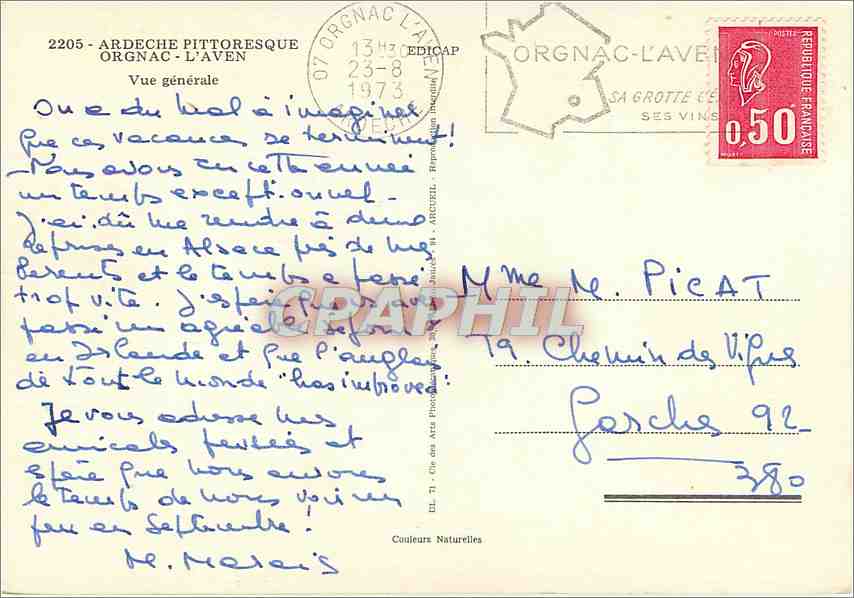 2205 - ARDECHE PITTORESQUE
ORGNAC - L'AVEN
Vue générale
EDICAP
07 ORGNAC L'AVEN
13H30
23-8
1973
ARDECHE
ORGNAC-L'AVEN
SA GROTTE CÉ
SES VINS
POSTES
REPUBLIQUE FRANÇAISE
0,50
On a du mal à imaginer
que ces vacances se terminent!
Nous avons eu cette année
un temps exceptionnel -
J'ai dû me rendre à deux
reprises en Alsace près de mes
parents et le temps a passé
trop vite. J'espère que vous avez
passé un agréable séjour
en Irlande et que l'anglais
de tout le monde "has improved".
Je vous adresse mes
amicales pensées et
espère que nous aurons
le temps de nous voir un
peu en Septembre!
M. Marais
Mme M. PICAT
19. Chemin des Vignes
Garches 92-
380
EIL. 71 - Cie des Arts Photomécaniques, Jaurès - 94 - ARCUEIL - Reproduction interdite
Couleurs Naturelles
CPAPHIL